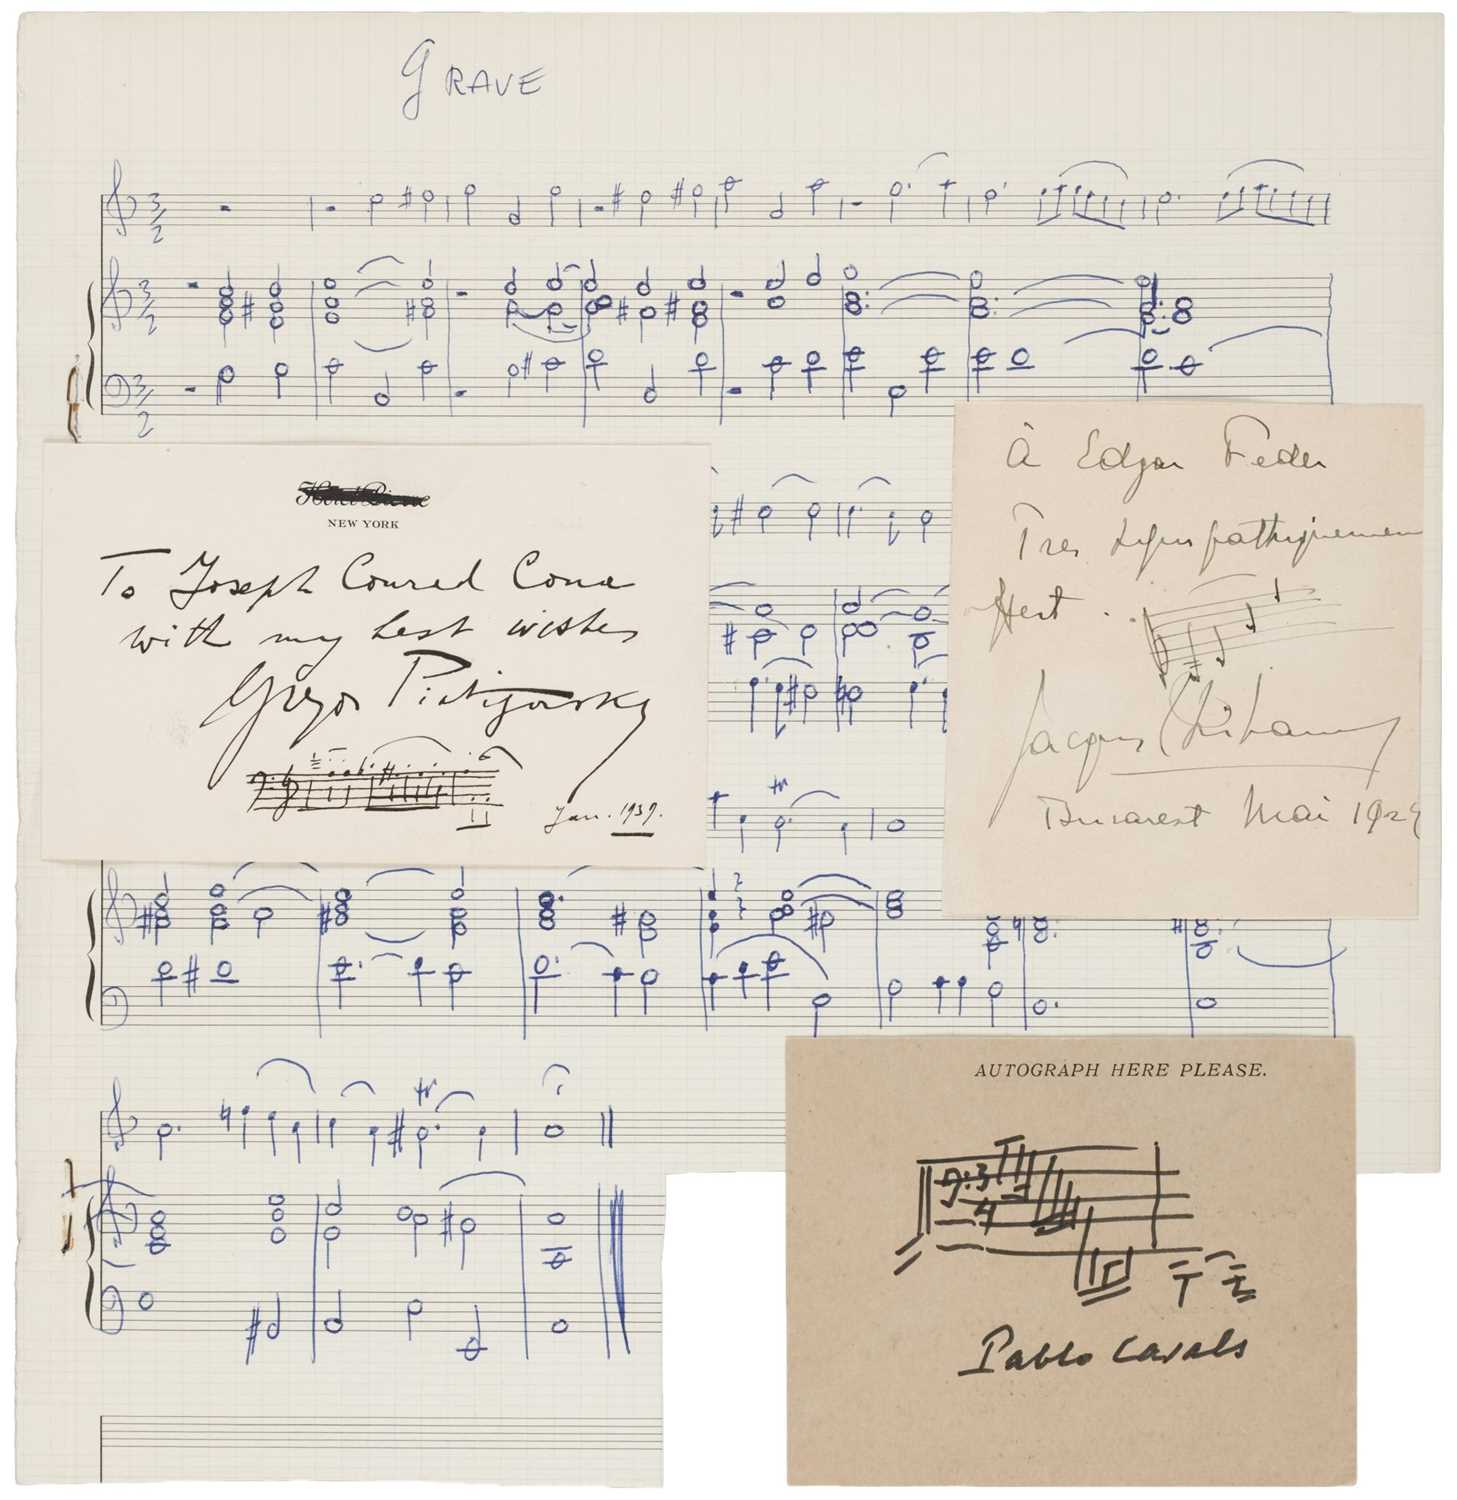 GRAVE
3/2
3/2
3/2
Hôtel Pierre
NEW YORK
To Joseph Conrad Cona
with my best wishes
Gregor Piatigorsky
Jan. 1939.
À Edgar Feder
Tres sympathiquement
Jacques Thibaud
Bucarest Mai 192
tr
tr
AUTOGRAPH HERE PLEASE.
3/4
Pablo Casals